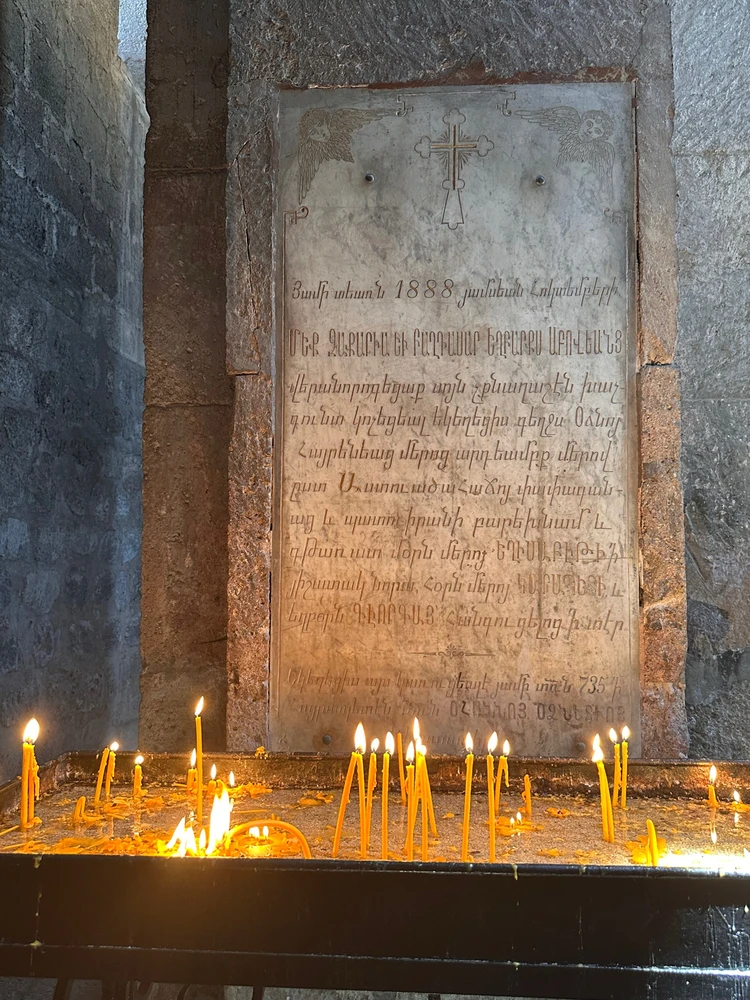 Յամի տեառն 1888 յամսեան Հոկտեմբերի
ՄԵՔ ԶԱՔԱՐԻԱ ԵՒ ԲԱՂԴԱՍԱՐ ԵՂԲԱՐՔՍ ԱԲՈՎԵԱՆՑ
վերանորոգեցաք այն չքնաղաշէն խաչ-
գումտ կոչեցեալ եկեղեցիս գեղջս Օձնոյ
Հայրենեաց մերոց արդեամբք մերով
ըստ Աստուածահաճոյ փափագան-
աց և պատուիրանի բարեխնամ և
գթառատ մօրն մերոյ ԵՂԻՍԱԲԵԹԻՆ
յիշատակ նորա, Հօրն մերոյ և
եղբօրն ԳԷՈՐԳԱՅ Հանգուցելոց
Եկեղեցիս այս կառուցեալ է յամի տեառն 735 ի
ՕՁՆԵՑԻՈՅ